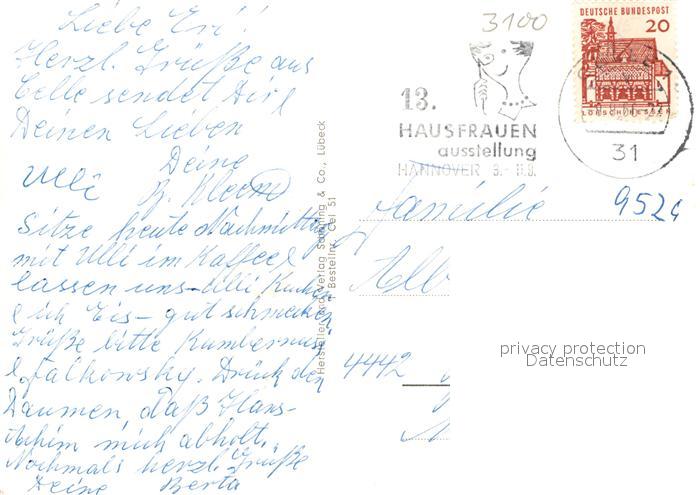 Liebe Evi!
Herzl. Grüße aus
Celle sendet Dir &
Deinen Lieben
Deine
Ulli B. Kleem
Sitze heute Nachmittag
mit Ulli im Kaffee &
lassen uns - Ulli Kuchen
& ich Eis - gut schmecken
Grüße bitte
& Falkowsky. Drück den
Daumen, daß Hans-
Achim mich abholt.
Nochmals herzl. Grüße
Deine Berta
Hersteller und Verlag Schöning & Co., Lübeck
Bestellnr. Cel 51
3100
DEUTSCHE BUNDESPOST
20
LORSCH/HESSEN
CELLE
31
13.
HAUSFRAUEN
ausstellung
HANNOVER 3.- 11.9.
Familie
952
Alb
4442
privacy protection
Datenschutz